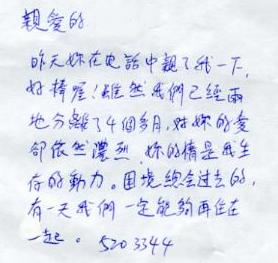 親愛的
昨天妳在电話中親了我一下,
好棒喔!雖然我們已經兩
地分離了4個多月,对妳的愛
卻依然濃烈.妳的情是我生
存的動力。困境總会过去的,
有一天我們一定能夠再住在
一起。5203344